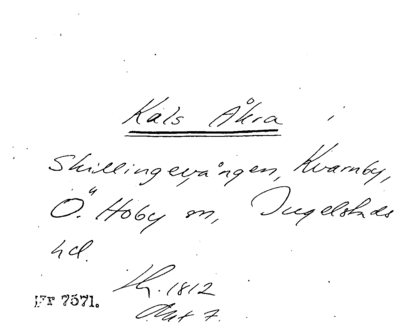 Kals Åkra i
Skillingevången, Kvarnby,
Ö. Hoby sn, Ingelstads
hd.
Lk. 1812
Akt 7.
Fr 7571.